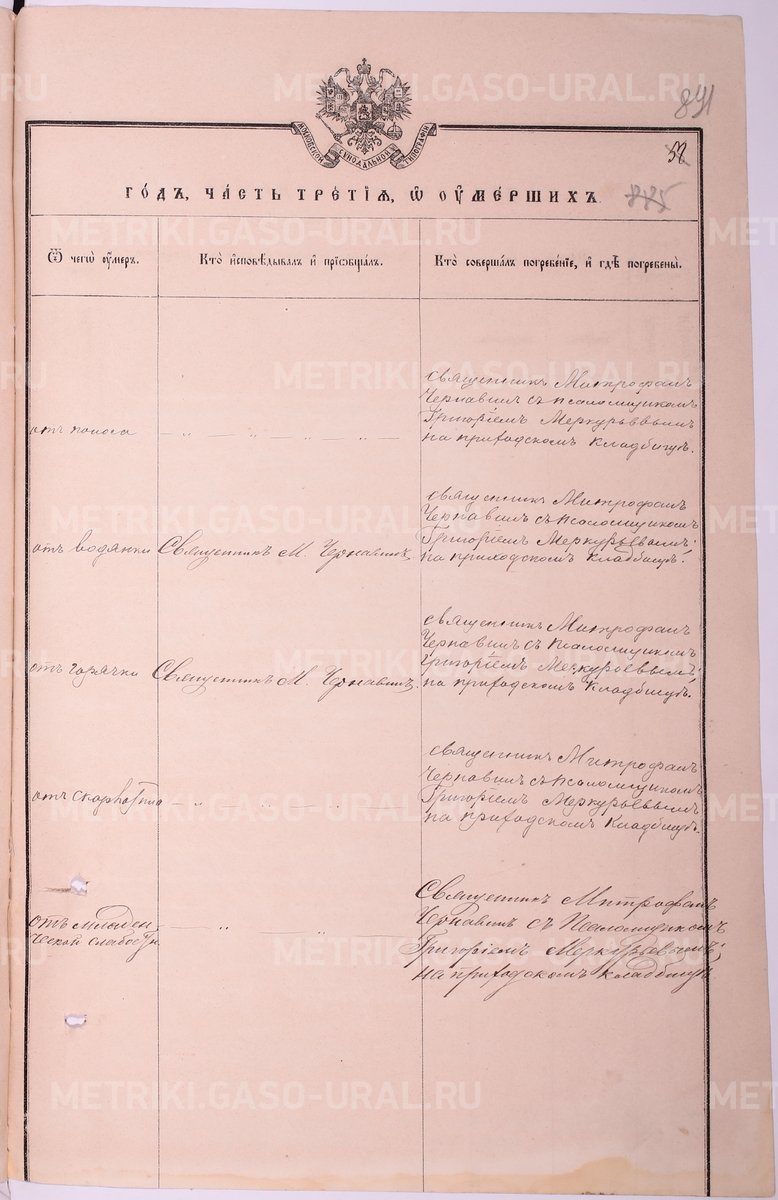 891
52
МОСКОВСКОЙ СѴНОДАЛЬНОЙ ТИПОГРАФІИ
885
ГО́ДЪ, ЧА́СТЬ ТРЕ́ТІѦ, Ѡ҆ ОУ҆МЕ́РШИХЪ.
Ѿ чегѡ̀ оу҆́меръ.
Кто̀ и҆сповѣ́дывалъ и҆ прїѻбща́лъ.
Кто̀ соверша́лъ погребе́нїе, и҆ гдѣ̀ погребены̀.
отъ поноса
священникъ Митрофанъ
Чернавинъ съ псаломщикомъ
Григоріемъ Меркурьевымъ
на приходскомъ кладбищѣ.
отъ водянки
Священникъ М. Чернавинъ
священникъ Митрофанъ
Чернавинъ съ псаломщикомъ
Григоріемъ Меркурьевымъ
на приходскомъ кладбищѣ.
отъ горячки
Священникъ М. Чернавинъ.
священникъ Митрофанъ
Чернавинъ съ псаломщикомъ
Григоріемъ Меркурьевымъ
на приходскомъ кладбищѣ.
отъ скарлатина
священникъ Митрофанъ
Чернавинъ съ псаломщикомъ
Григоріемъ Меркурьевымъ
на приходскомъ кладбищѣ.
отъ младен
ческой слабости
Священникъ Митрофанъ
Чернавинъ съ Псаломщикомъ
Григоріемъ Меркурьевымъ;
на приходскомъ кладбищѣ.
METRIKI.GASO-URAL.RU